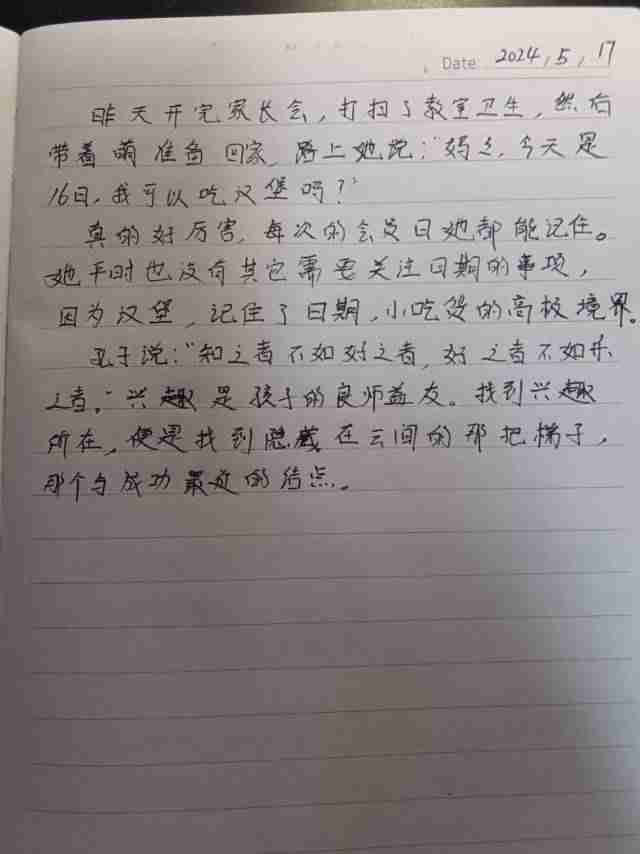 Date: 2024, 5, 17
昨天开完家长会，打扫了教室卫生，然后
带着萌准备回家，路上她说：“妈妈，今天是
16日，我可以吃汉堡吗？”
真的好厉害，每次的会员日她都能记住。
她平时也没有其它需要关注日期的事项，
因为汉堡，记住了日期，小吃货的高级境界。
孔子说：“知之者不如好之者，好之者不如乐
之者。”兴趣是孩子的良师益友。找到兴趣
所在，便是找到隐藏在云间的那把梯子，
那个与成功最近的结点。